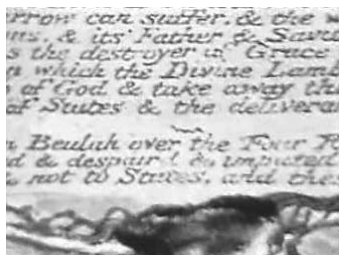 rrow can suffer, & the
ns, & its Father & Savi
s the destroyer in Grace
n which the Divine Lamb
of God & take away th
of States & the delivera
n Beulah over the Four F
d & despair! & imputed
not to States, and the